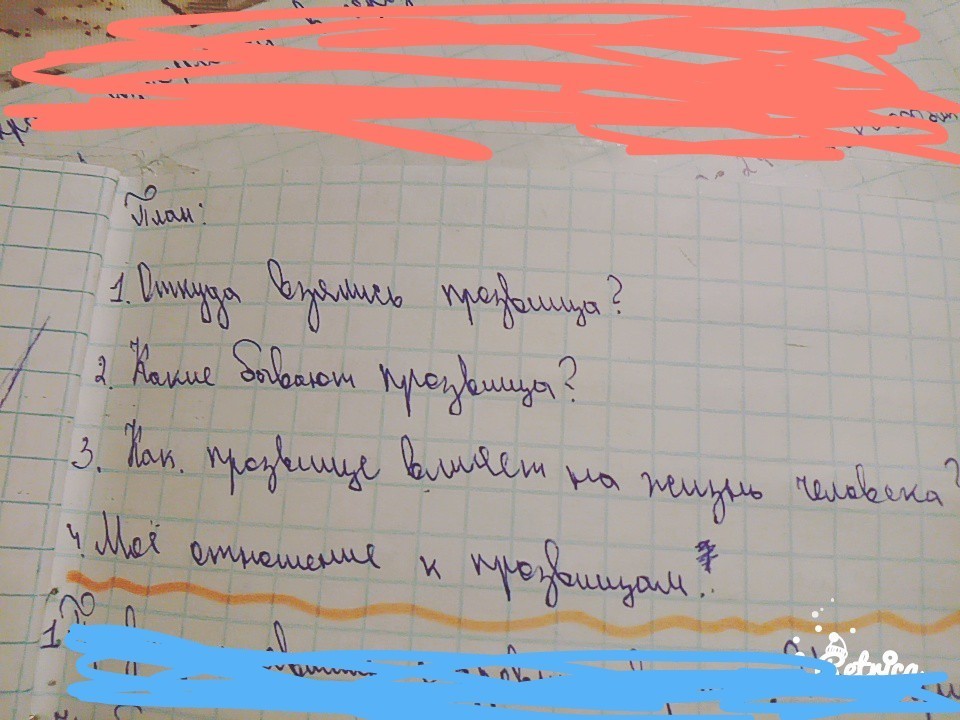 План:
1. Откуда взялись прозвища?
2. Какие бывают прозвища?
3. Как прозвище влияет на жизнь человека?
4. Моё отношение к прозвищам.
1
Retrica